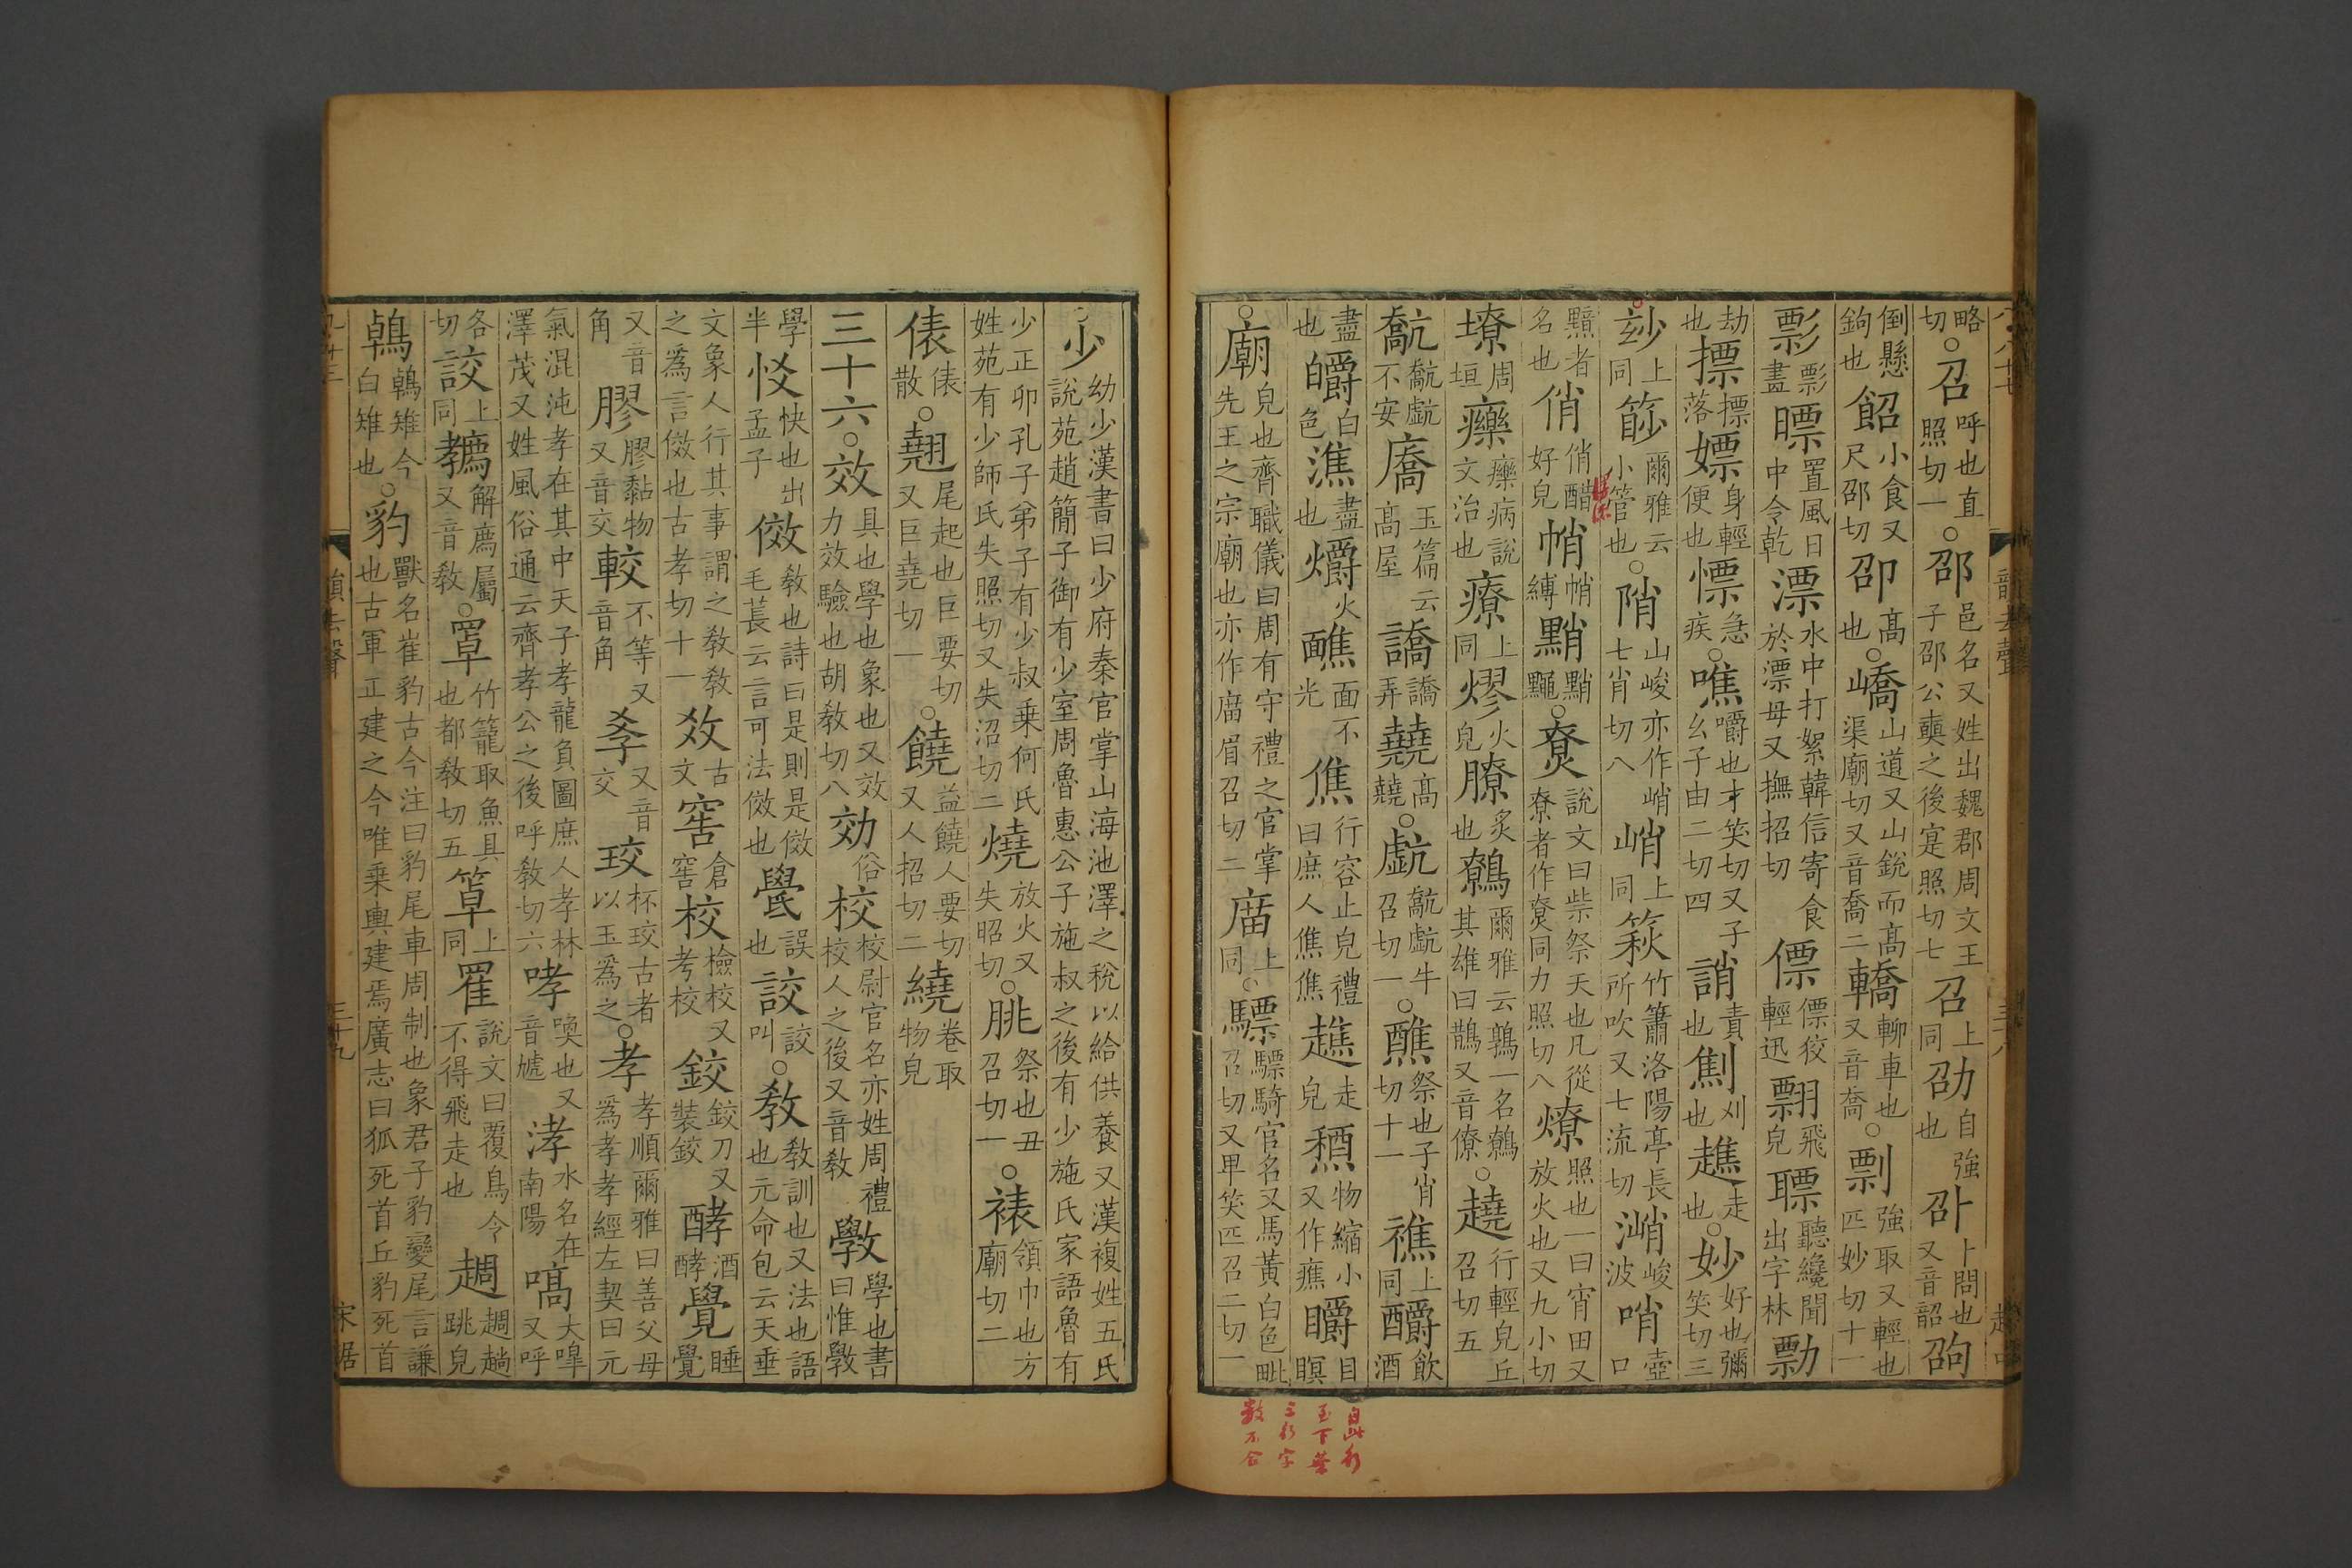 略切○召呼也直照切一○邵邑名又姓出魏郡周文王子邵公奭之後寔照切七召上同劭自強也卲卜問也又音韶
倒懸鉤也䬰小食又尺邵切卲高也○嶠山道又山銳而髙渠廟切又音喬二轎軺車也又音喬○剽強取又輕也匹妙切十一
彯彯畫㬓置風日中令乾漂水中打絮韓信寄食於漂母又撫招切僄僄狡輕迅翲飛皃聽纔聞出字林勡
劫也摽摽落嫖身輕便也慓急疾○噍嚼也才笑切又子幺子由二切四誚責也劁刈也趭走也○妙好也彌笑切三
玅上同篎爾雅云小管也○陗山峻亦作峭七肖切八峭上同䉤竹簫洛陽亭長所吹又七流切峻波哨壺口
黯者名也俏俏醋好皃帩帩縛○尞說文曰祡祭天也凡從尞者作尞同力照切八燎照也一曰宵田又放火也又九小切
周垣病說文治也療上同熮火皃膫炙也鷯爾雅云鷯一名鷯其雄曰鵲又音僚○趬行輕皃丘召切五
不安玉篇云髙屋譑譑弄髙○牛召切一○醮祭也子肖切十一上同釂飲酒
盡也皭白色潐盡也爝火面不光僬行容止皃禮曰庶人僬僬趭走皃物縮小又作癄目瞑
○廟皃也齊職儀曰周有守禮之官掌先王之宗廟也亦作庿眉召切二庿上同○驃驃騎官名又馬黃白色毗召切又卑笑匹召二切一
自此行
至下葉
三行字
數不合
○少幼少漢書曰少府秦官掌山海池澤之稅以給供養又漢複姓五氏說苑趙簡子御有少室周魯惠公子施叔之後有少施氏家語魯有
少正卯孔子弟子有少叔乗何氏姓苑有少師氏失照切又失沼切二燒放火又失昭切○朓祭也丑召切一○裱領巾也方廟切二
俵俵散○翹尾起也巨要切又巨堯切一○饒益饒人要切又人招切二繞卷取物皃
三十六○效具也學也象也又效力效驗也胡敎切八効俗校校尉官名亦姓周禮校人之後又音敎斆學也書曰惟斆
學半恔快也出孟子傚敎也詩曰是則是傚毛萇云言可法傚也誤也詨詨叫○敎敎訓也又法也語也元命包云天垂
文象人行其事謂之敎敎之爲言傚也古孝切十一效古文窖倉窖校檢校又考校鉸鉸刀又裝鉸酵酒酵覺睡覺
又音角膠膠黏物又音交較不等又音角又音交珓杯珓古者以玉爲之○孝孝順爾雅曰善父母爲孝孝經左契曰元
氣混沌孝在其中天子孝龍負圖庶人孝林澤茂又姓風俗通云齊孝公之後呼敎切六哮喚也又音虓涍水名在南陽嗃大嘷又呼
各切詨上同解廌屬又音敎○罩竹籠取魚具也都敎切五䈇上同䍜說文曰覆鳥令不得飛走也趙跳皃
鵫鵫雉今白雉也○豹獸名崔豹古今注曰豹尾車周制也象君子豹變尾言謙也古軍正建之今唯乗輿建焉廣志曰狐死首丘豹死首
三十九
宋琚